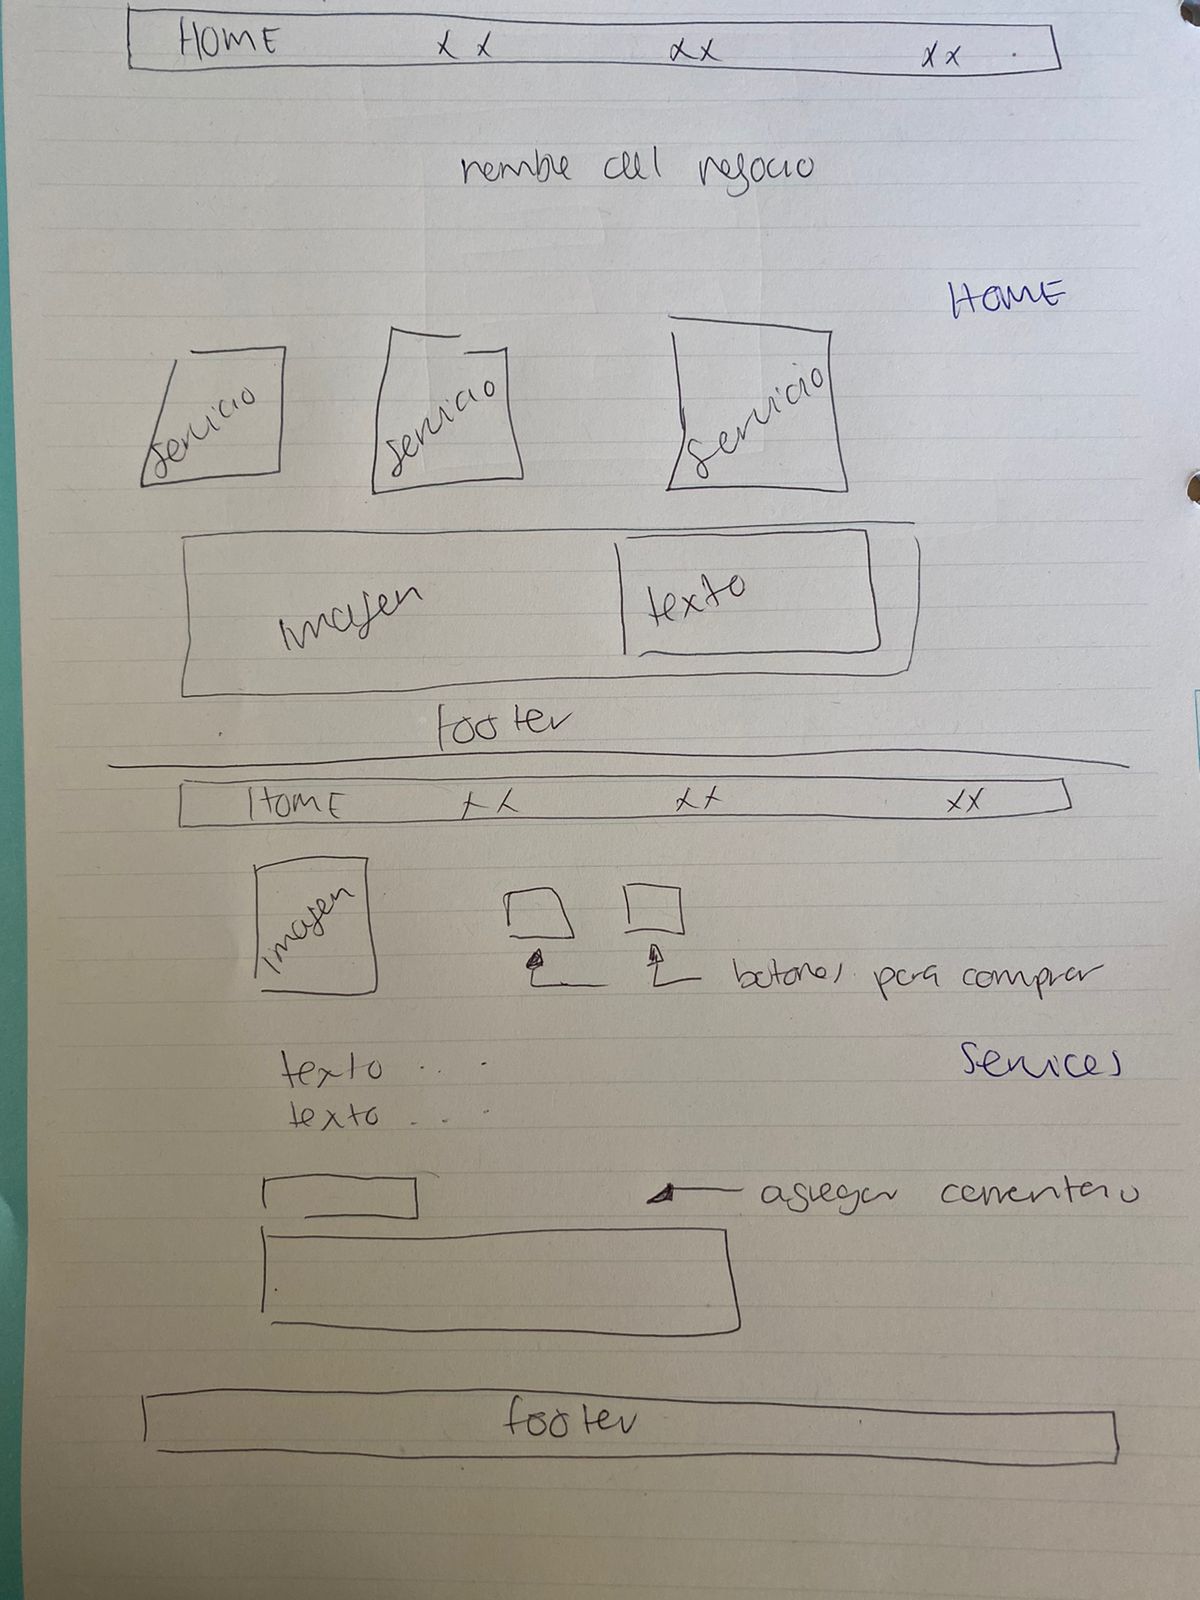 HOME xx xx xx
nombre del negocio
HOME
servicio servicio servicio
imagen texto
footer
HOME xx xx xx
imagen
botones para comprar
texto ...
Services
texto ...
agregar comentario
footer